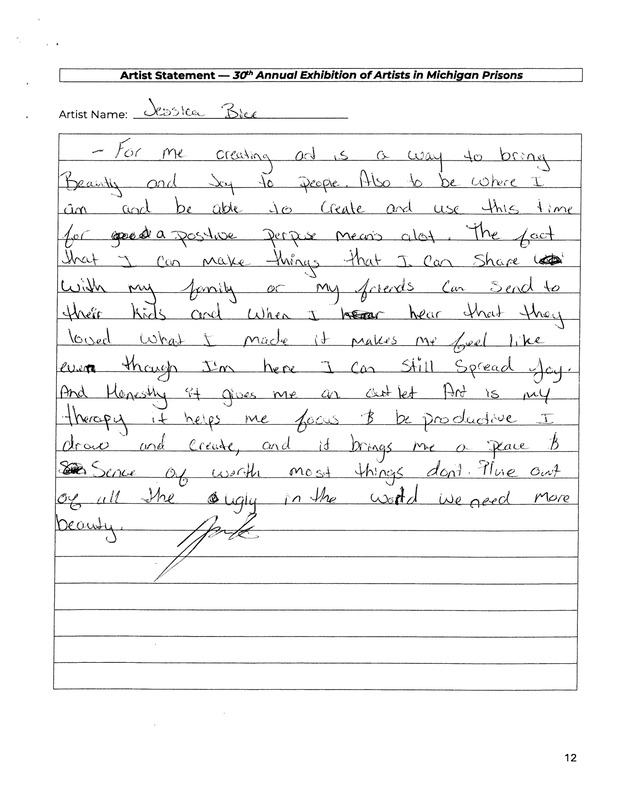 Artist Statement — 30th Annual Exhibition of Artists in Michigan Prisons
Artist Name: Jessica Bice
- For me creating art is a way to bring
Beauty and Joy to people. Also to be where I
am and be able to create and use this time
for a positive perpse means alot. The fact
that I can make things that I can share
with my family or my friends can send to
their kids and when I hear that they
loved what I made it makes me feel like
even though I'm here I can still spread Joy.
And Honestly it gives me an outlet Art is my
therapy it helps me focus & be productive I
draw and create, and it brings me a peace &
Sence of worth most things dont. Plue out
of all the ugly in the world we need more
beauty.
12